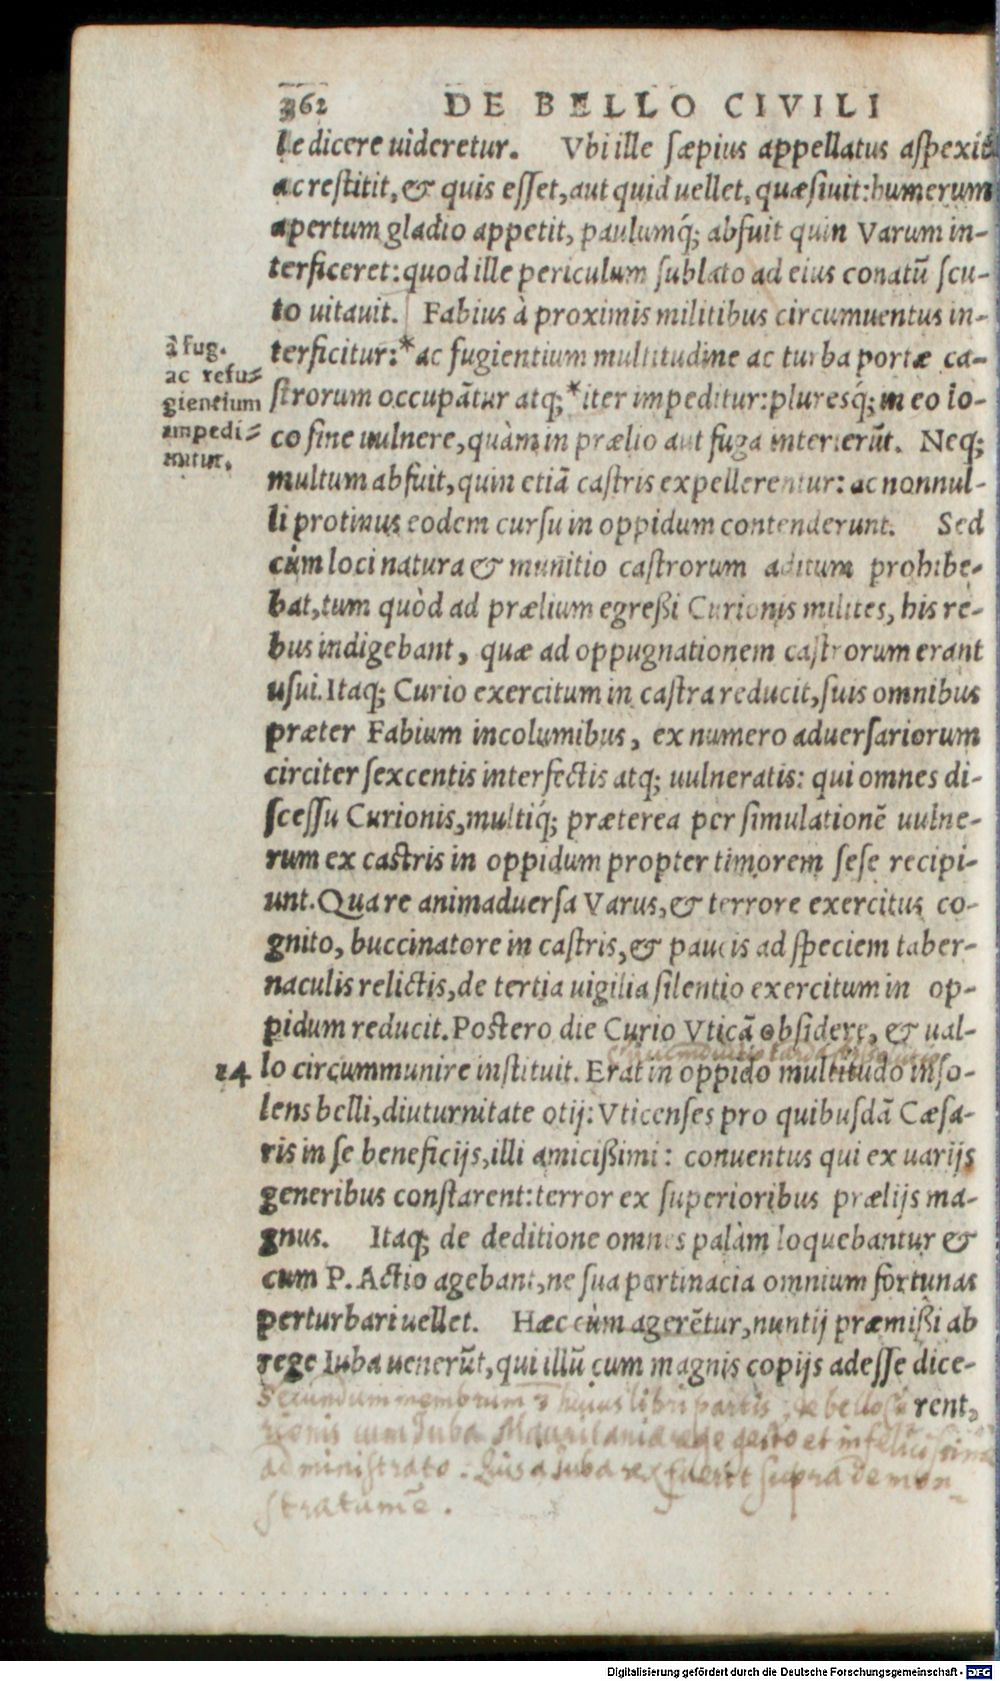 362 DE BELLO CIVILI
le dicere uideretur. Vbi ille sæpius appellatus aspexit
ac restitit, & quis esset, aut quid uellet, quæsiuit: humerum
apertum gladio appetit, paulumq́; absuit quin Varum in-
terficeret: quod ille periculum sublato ad eius conatũ scu-
to uitauit. Fabius à proximis militibus circumuentus in-
terficitur: *ac fugientium multitudine ac turba portæ ca-
strorum occupãtur atq; *iter impeditur: pluresq́; in eo lo-
co sine uulnere, quàm in prælio aut fuga interierũt. Neq;
multum abfuit, quin etiã castris expellerentur: ac nonnul-
li protinus eodem cursu in oppidum contenderunt. Sed
cùm loci natura & munitio castrorum aditum prohibe-
bat, tum quòd ad prælium egreßi Curionis milites, his re-
bus indigebant, quæ ad oppugnationem castrorum erant
usui. Itaq; Curio exercitum in castra reducit, suis omnibus
præter Fabium incolumibus, ex numero aduersariorum
circiter sexcentis interfectis atq; uulneratis: qui omnes di-
scessu Curionis, multiq́; præterea per simulationẽ uulne-
rum ex castris in oppidum propter timorem sese recipi-
unt. Qua re animaduersa Varus, & terrore exercitus co-
gnito, buccinatore in castris, & paucis ad speciem taber-
naculis relictis, de tertia uigilia silentio exercitum in op-
pidum reducit. Postero die Curio Vticã obsidere, & ual-
24 lo circummunire instituit. Erat in oppido multitudo inso-
lens belli, diuturnitate otij: Vticenses pro quibusdã Cæsa-
ris in se beneficijs, illi amicißimi: conuentus qui ex uarijs
generibus constarent: terror ex superioribus prælijs ma-
gnus. Itaq; de deditione omnes palàm loquebantur &
cum P. Actio agebant, ne sua pertinacia omnium fortunas
perturbari uellet. Hæc cùm agerẽtur, nuntij præmißi ab
rege Iuba uenerũt, qui illũ cum magnis copijs adesse dice-
rent,
â fug.
ac refu⸗
gientium
impedi⸗
untur.
Secundum membrum huius libri partis, de bello Cu
rionis cum Iuba Mauritaniæ rege gesto et infelicissime
administrato. Quis a Iuba rex fuerit supra demon-
stratum ẽ.
Digitalisierung gefördert durch die Deutsche Forschungsgemeinschaft - DFG